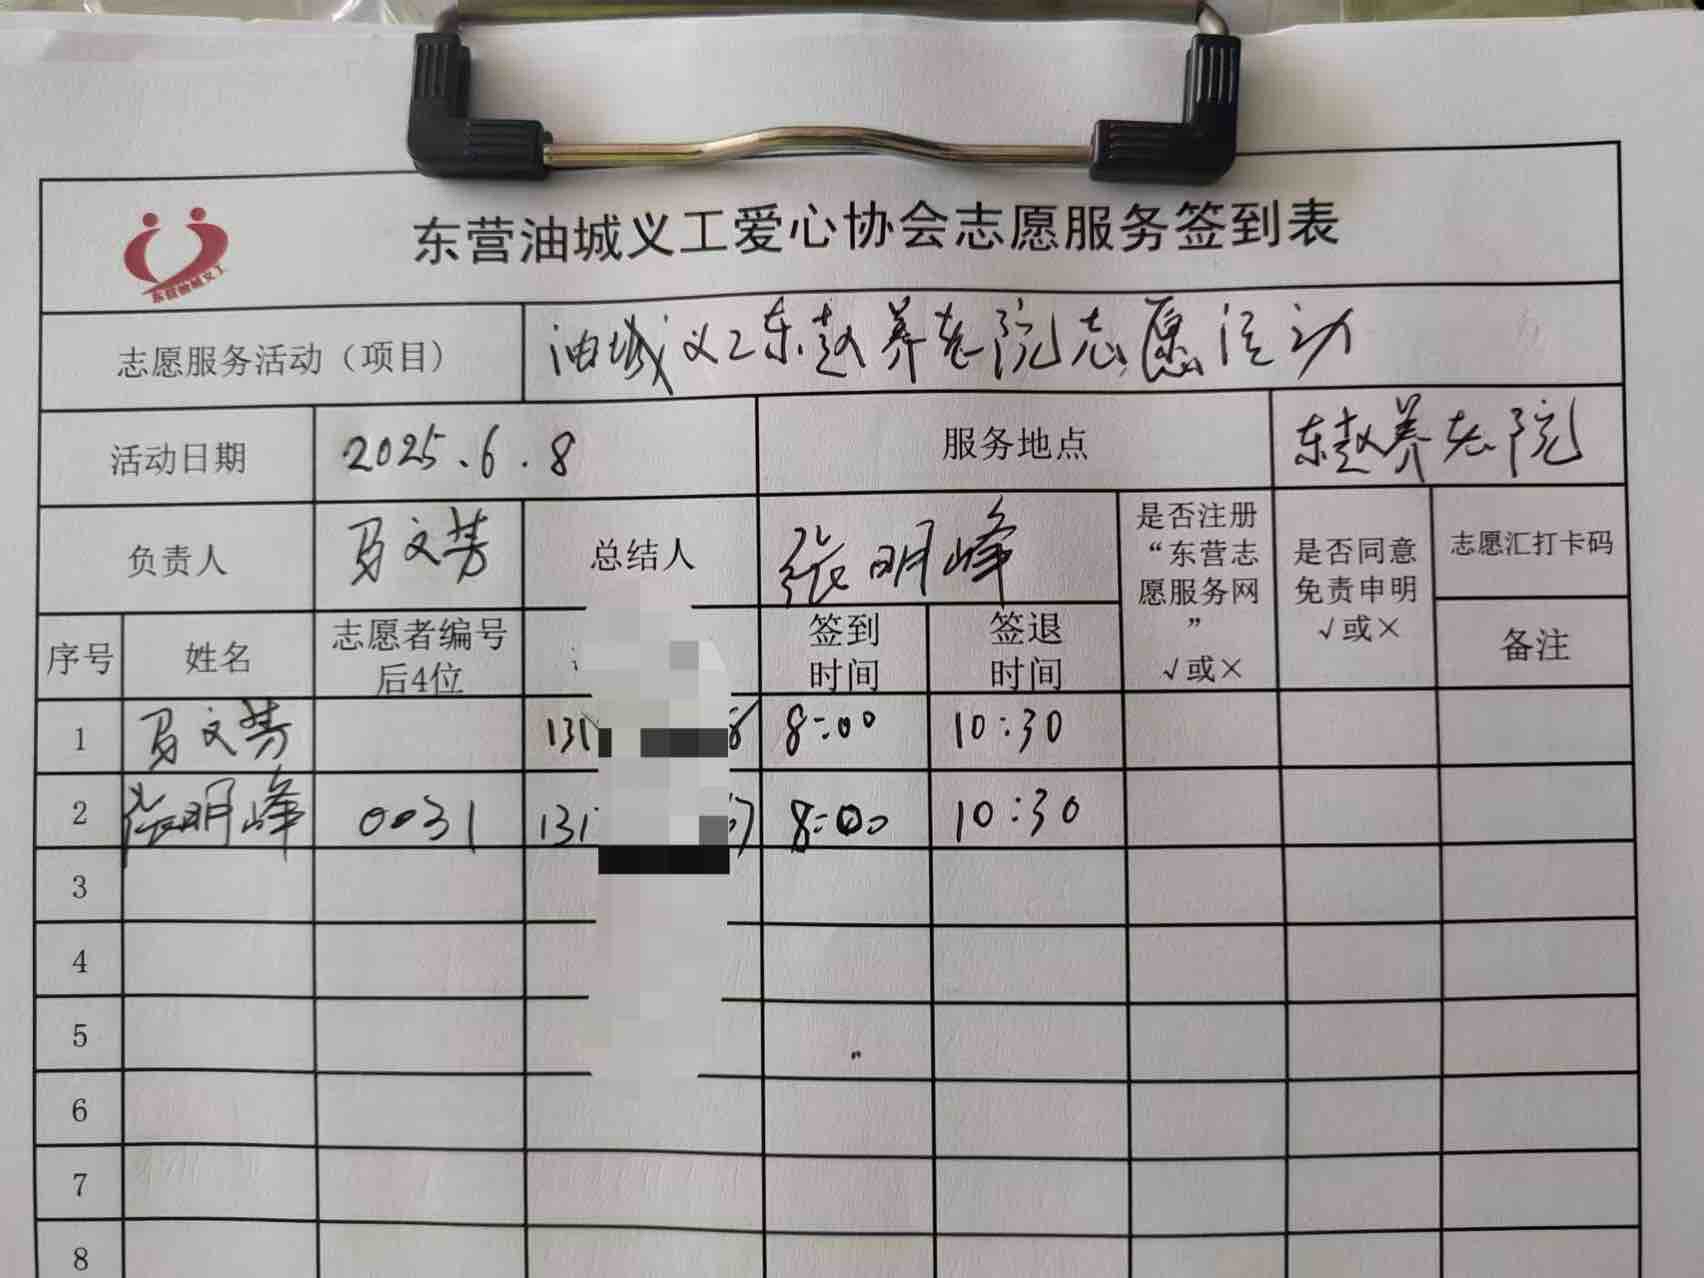 东营油城义工爱心协会志愿服务签到表
东营油城义工
志愿服务活动（项目） 油城义工东赵养老院志愿活动
活动日期 2025.6.8 服务地点 东赵养老院
负责人 马文芳 总结人 张明峰 是否注册“东营志愿服务网” √或× 是否同意免责申明 √或× 志愿汇打卡码
序号 姓名 志愿者编号后4位 签到时间 签退时间 备注
1 马文芳 131 8 8:00 10:30
2 张明峰 0031 131 7 8:00 10:30
3
4
5
6
7
8